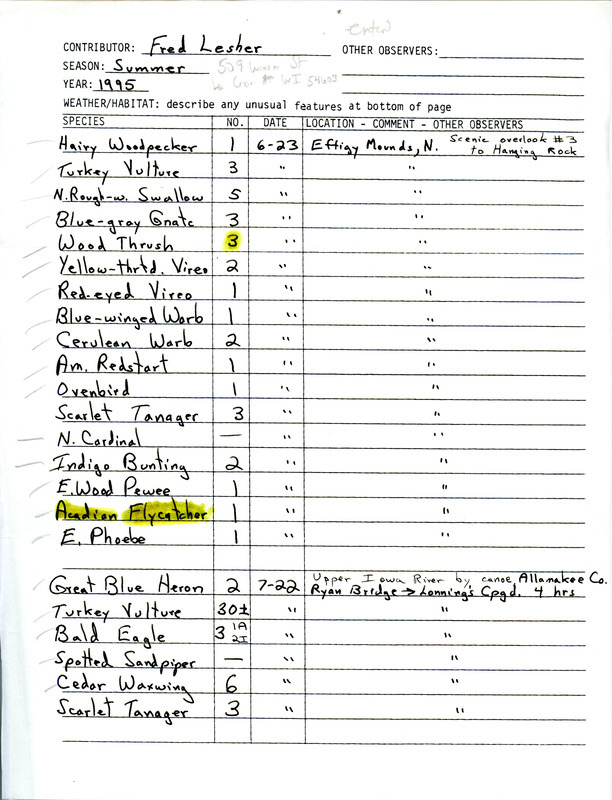 enter
CONTRIBUTOR: Fred Lesher OTHER OBSERVERS:
SEASON: Summer 509 St
YEAR: 1995 WI 54603
WEATHER/HABITAT: describe any unusual features at bottom of page
SPECIES NO. DATE LOCATION - COMMENT - OTHER OBSERVERS
Hairy Woodpecker 1 6-23 Effigy Mounds, N. Scenic overlook #3 to Hanging Rock
Turkey Vulture 3 " "
N. Rough-w. Swallow 5 " "
Blue-gray Gnatc 3 " "
Wood Thrush 3 " "
Yellow-thrtd. Vireo 2 " "
Red-eyed Vireo 1 " "
Blue-winged Warb 1 " "
Cerulean Warb 2 " "
Am. Redstart 1 " "
Ovenbird 1 " "
Scarlet Tanager 3 " "
N. Cardinal — " "
Indigo Bunting 2 " "
E. Wood Pewee 1 " "
Acadian Flycatcher 1 " "
E. Phoebe 1 " "
Great Blue Heron 2 7-22 Upper Iowa River by canoe, Allamakee Co. Ryan Bridge → Lonning's Cpgd. 4 hrs
Turkey Vulture 30± " "
Bald Eagle 3 1A 2I " "
Spotted Sandpiper — " "
Cedar Waxwing 6 " "
Scarlet Tanager 3 " "